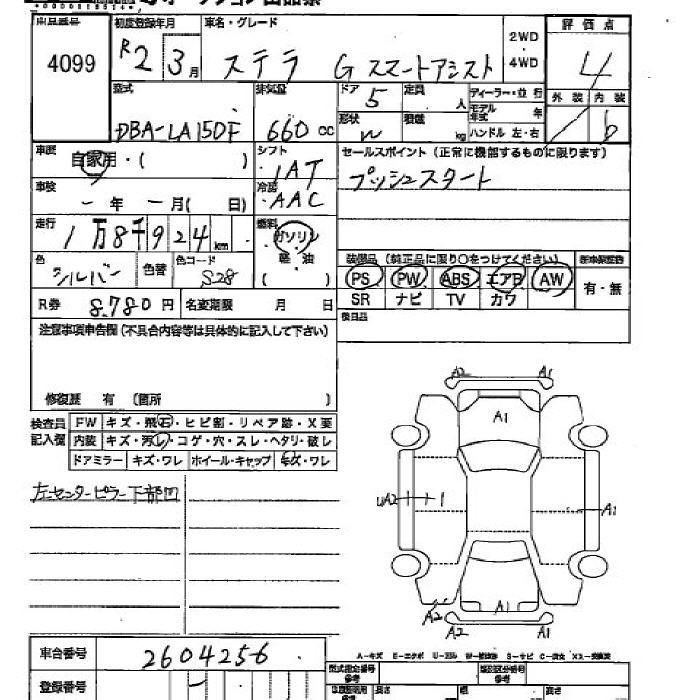 出品番号 4099
初度登録年月 R2 3月
車名・グレード ステラ G スマートアシスト
2WD
4WD
評価点 4
外装 内装 b
型式 DBA-LA150F
排気量 660 CC
ドア 5
定員 人
形状 W
積載 kg
ディーラー・並行
モデル年式 年
ハンドル 左・右
車歴 自家用・( )
シフト IAT
冷房 AAC
セールスポイント (正常に機能するものに限ります)
プッシュスタート
車検 - 年 - 月( 日)
走行 1万8千924km
燃料 ガソリン
軽・油
( )
色 シルバー
色替
色コード S28
装備品 (純正品に限り○をつけてください)
PS PW ABS エアB AW
SR ナビ TV カワ
有・無
R券 8,780円
名変期限 月 日
後日品
注意事項申告欄 (不具合内容等は具体的に記入して下さい)
修復歴 有 (箇所 )
検査員記入欄
FW キズ・飛石・ヒビ割・リペア跡・X要
内装 キズ・汚レ・コゲ・穴・スレ・ヘタリ・破レ
ドアミラー キズ・ワレ ホイール・キャップ キズ・ワレ
左センターピラー下部凹
A2 A1
A1
A1
A2 A2 A1
車台番号 2604256
登録番号 -
A-キズ E-エクボ
型式指定番号
類別区分番号
高さ